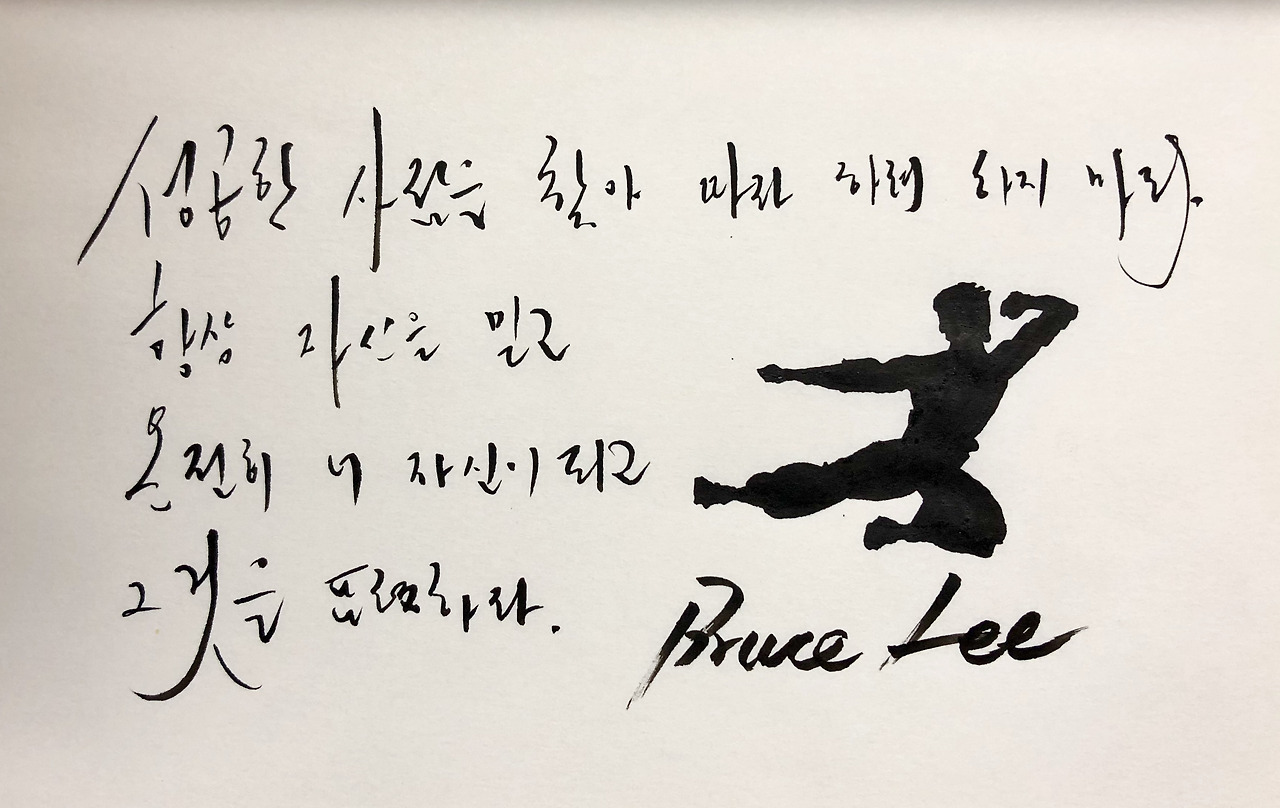 성공한 사람을 찾아 따라 하려 하지 마라.
항상 자신을 믿고
온전히 너 자신이 되고
그것을 표현하라.
Bruce Lee